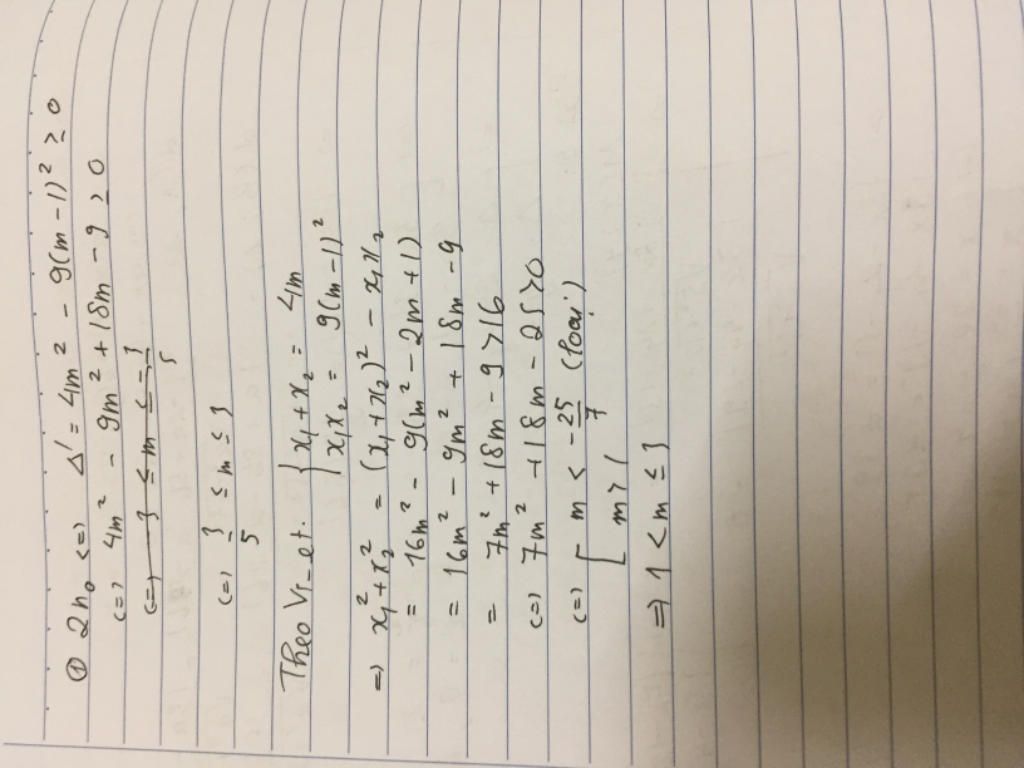 ① 2 n₀ <=> Δ' = 4m² - 9(m-1)² ≥ 0
<=> 4m² - 9m² + 18m - 9 ≥ 0
<=> 3/5 ≤ m ≤ 3
Theo Vi-et. { x₁ + x₂ = 4m
x₁x₂ = 9(m-1)²
=> x₁² + x₂² = (x₁ + x₂)² - x₁x₂
= 16m² - 9(m² - 2m + 1)
= 16m² - 9m² + 18m - 9
= 7m² + 18m - 9 > 16
<=> 7m² + 18m - 25 > 0
<=> [ m < -25/7 (loại)
m > 1
=> 1 < m ≤ 3